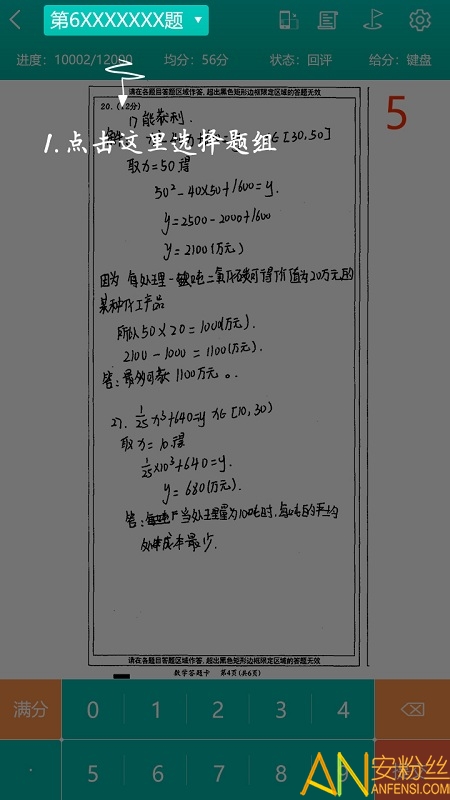 第6XXXXXXX题
进度：10002/12000 均分：56分 状态：回评 给分：键盘
请在各题目答题区域作答，超出黑色矩形边框限定区域的答题无效
20. (12分)
1.点击这里选择题组
5
能获利.
∈[30,50]
取x=50得
50²-40×50+1600=y.
y=2500-2000+1600
y=2100(万元)
因为 每处理一吨二氧化碳可得价值为20万元的
某种化工产品
所以50×20=1000(万元).
2100-1000=1100(万元).
答: 1100万元。
1/25 x³+640=y x∈[10,30)
取x=10得
1/25×10³+640=y.
y=680(万元).
答: 当处理量为100吨时，每吨的平均
处理成本最少.
请在各题目答题区域作答，超出黑色矩形边框限定区域的答题无效
数学答题卡 第4页(共6页)
满分 0 1 2 3 4
· 5 6 7 8 9 提交
安粉丝
ANFENSI.COM